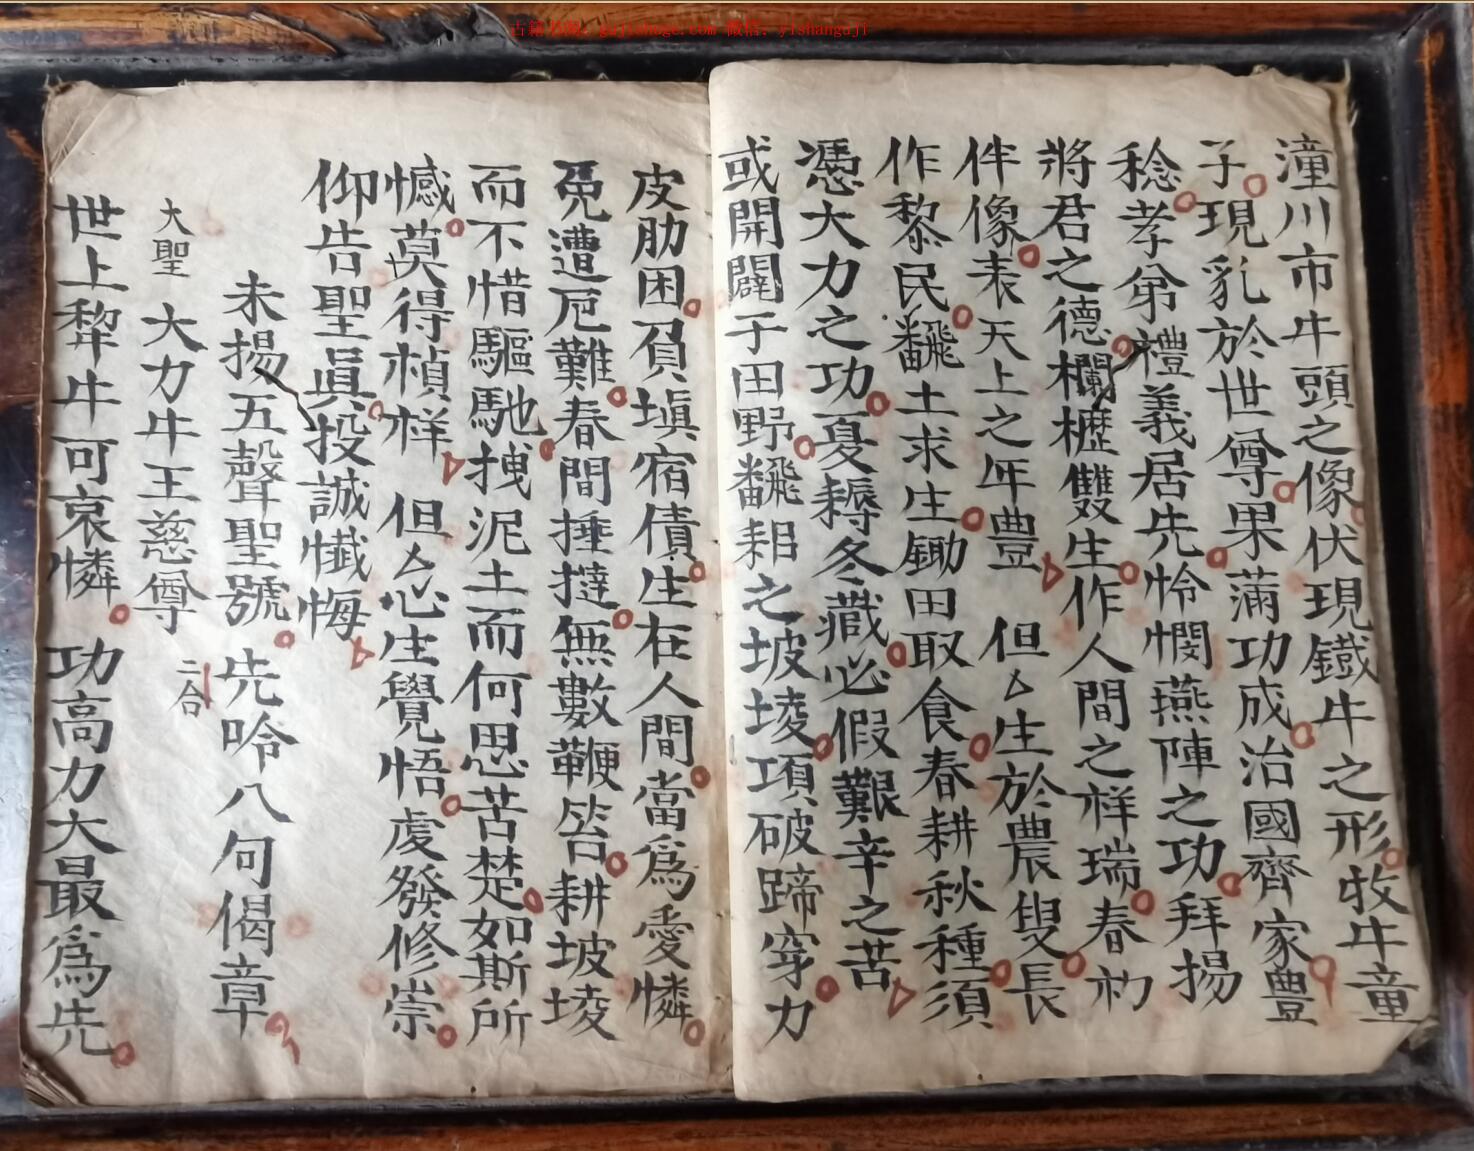 古籍书阁：gujishuge.com 微信：yishanguji
潼川市牛頭之像伏現鐵牛之形牧牛童
子現乳於世尊果蒲功成治國齊家豐
稔孝弟禮義居先怜憫燕陣之功拜揚
將君之德欄櫪雙生作人間之祥瑞春礿
伴像表天上之年豊 但厶生於農叟長
作黎民飜土求生鋤田取食春耕秋種須
憑大力之功夏耨冬藏必假艱辛之苦
或開闢于田野飜耜之坡堎項破蹄穿力
皮肋困負塡宿債生在人間當爲愛憐
免遭厄難春間捶撻無數鞭笞耕坡堎
而不惜驅馳拽泥土而何思苦楚如斯所
憾莫得楨样 但厶心生覺悟虔發修崇
仰告聖眞投誠懺悔
未揚五聲聖號先吟八句偈章
大聖 大力牛王慈尊 二合
世上犂牛可哀憐 功高力大最爲先